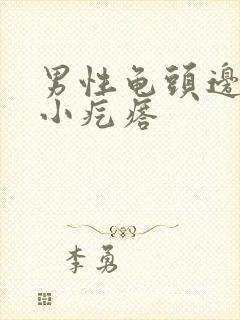 男性龟頭邊
小疙瘩
李勇